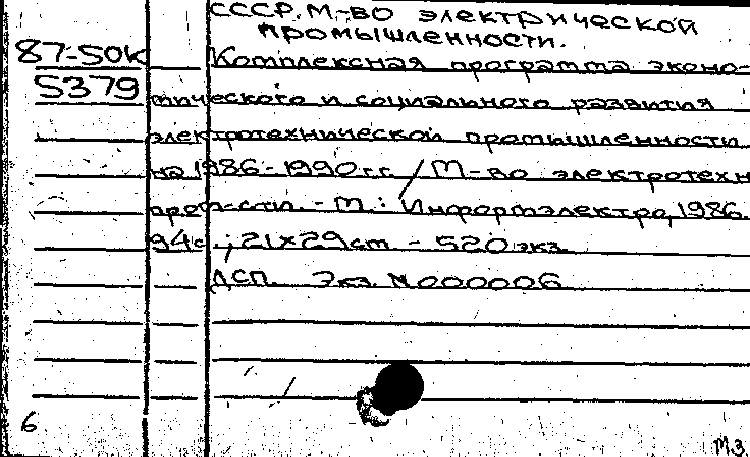 СССР. М-во электрической
промышленности.
87-50К
5379
Комплексная программа эконо-
мического и социального развития
электротехнической промышленности
на 1986-1990 гг. / М-во электротехн
пром-сти. - М.: Информэлектро, 1986.
94с.; 21х29см. - 520 экз.
ДСП. Экз. №000006
6
мз